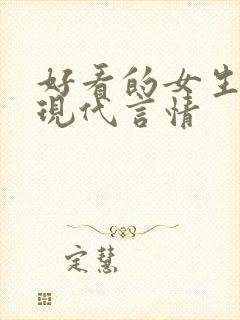 好看的女生
现代言情
定慧